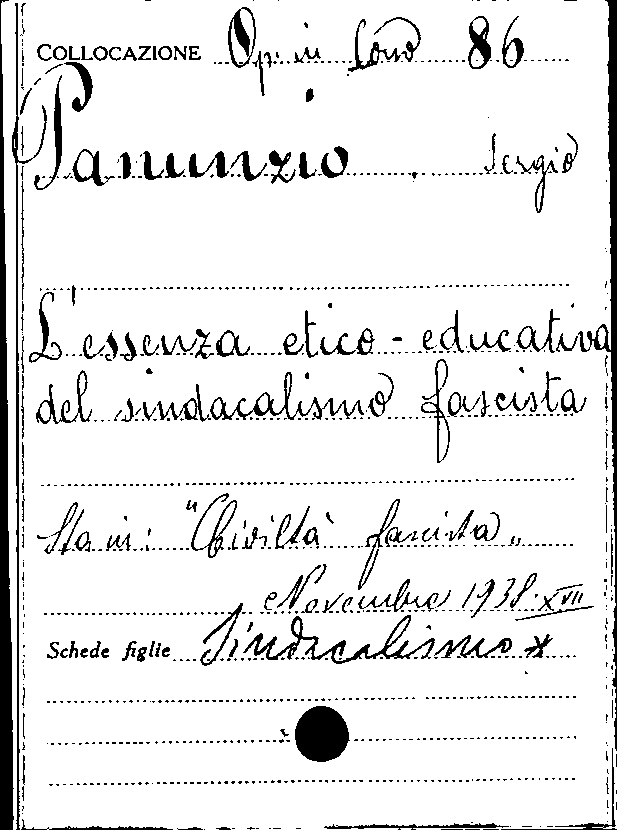 COLLOCAZIONE Op. in Cons 86
Panunzio . Sergio
L'essenza etico-educativa
del sindacalismo fascista
Sta in: "Civiltà fascista„
Novembre 1938. XVII
Schede figlie Sindacalismo x